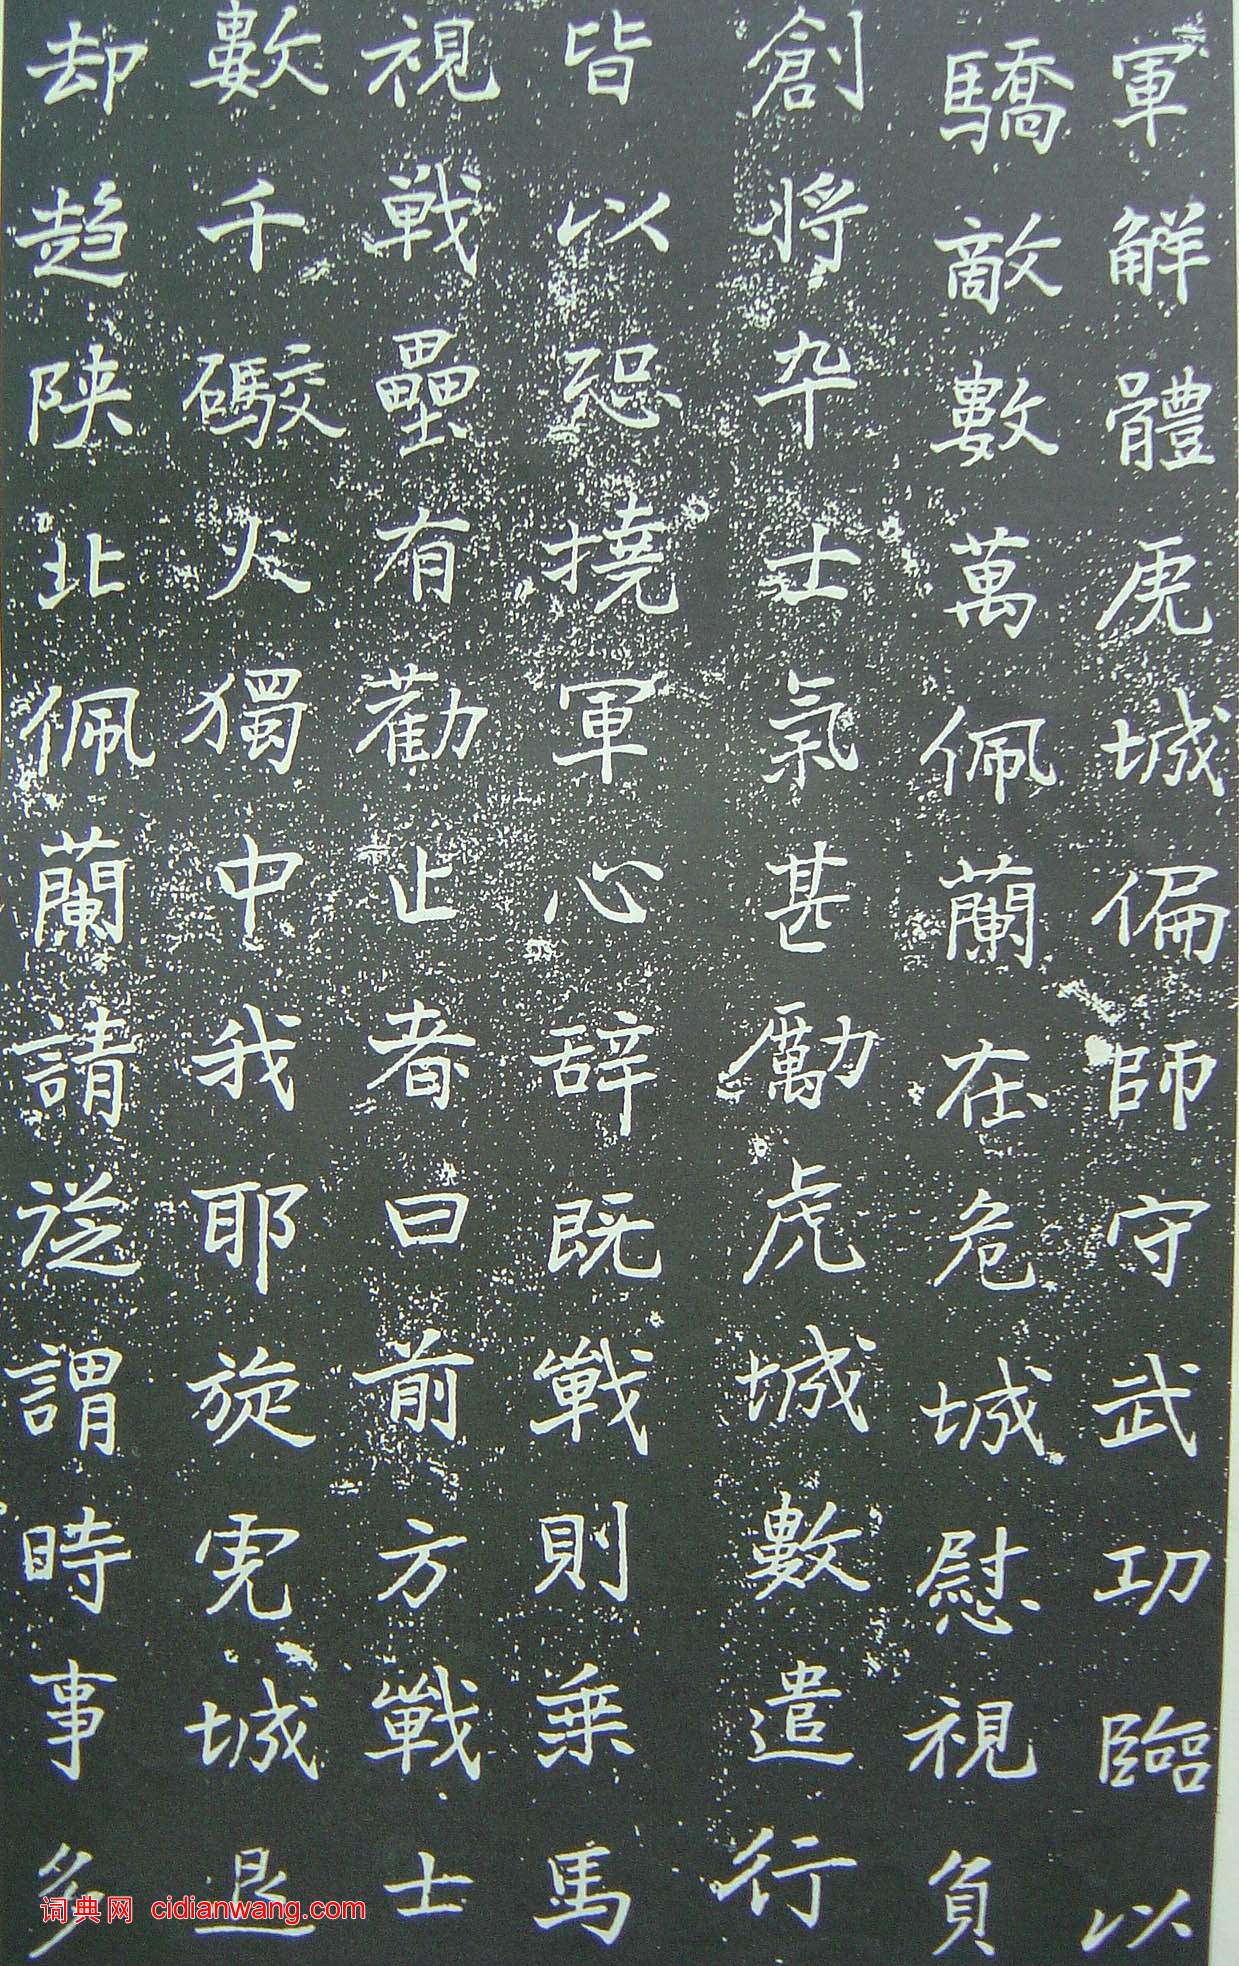 軍解體虎城偏師守武功臨以
驕敵數萬佩蘭在危城慰視負
創將卒士氣甚勵虎城數遣行
皆以恐撓軍心辞既戰則乗馬
視戦壘有勸止者曰前方戰士
數千礮火獨中我耶旋虎城退
却趋陕北佩蘭請从謂時事多
词典网 cidianwang.com